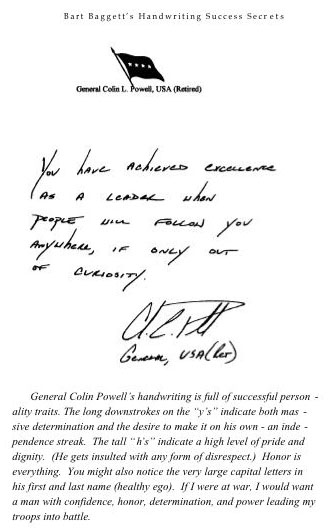 Bart Baggett's Handwriting Success Secrets
General Colin L. Powell, USA (Retired)
You have achieved excellence
as a leader when
people will follow you
anywhere, if only out
of curiosity.
General, USA (Ret)
General Colin Powell's handwriting is full of successful person -
ality traits. The long downstrokes on the "y's" indicate both mas -
sive determination and the desire to make it on his own - an inde -
pendence streak. The tall "h's" indicate a high level of pride and
dignity. (He gets insulted with any form of disrespect.) Honor is
everything. You might also notice the very large capital letters in
his first and last name (healthy ego). If I were at war, I would want
a man with confidence, honor, determination, and power leading my
troops into battle.